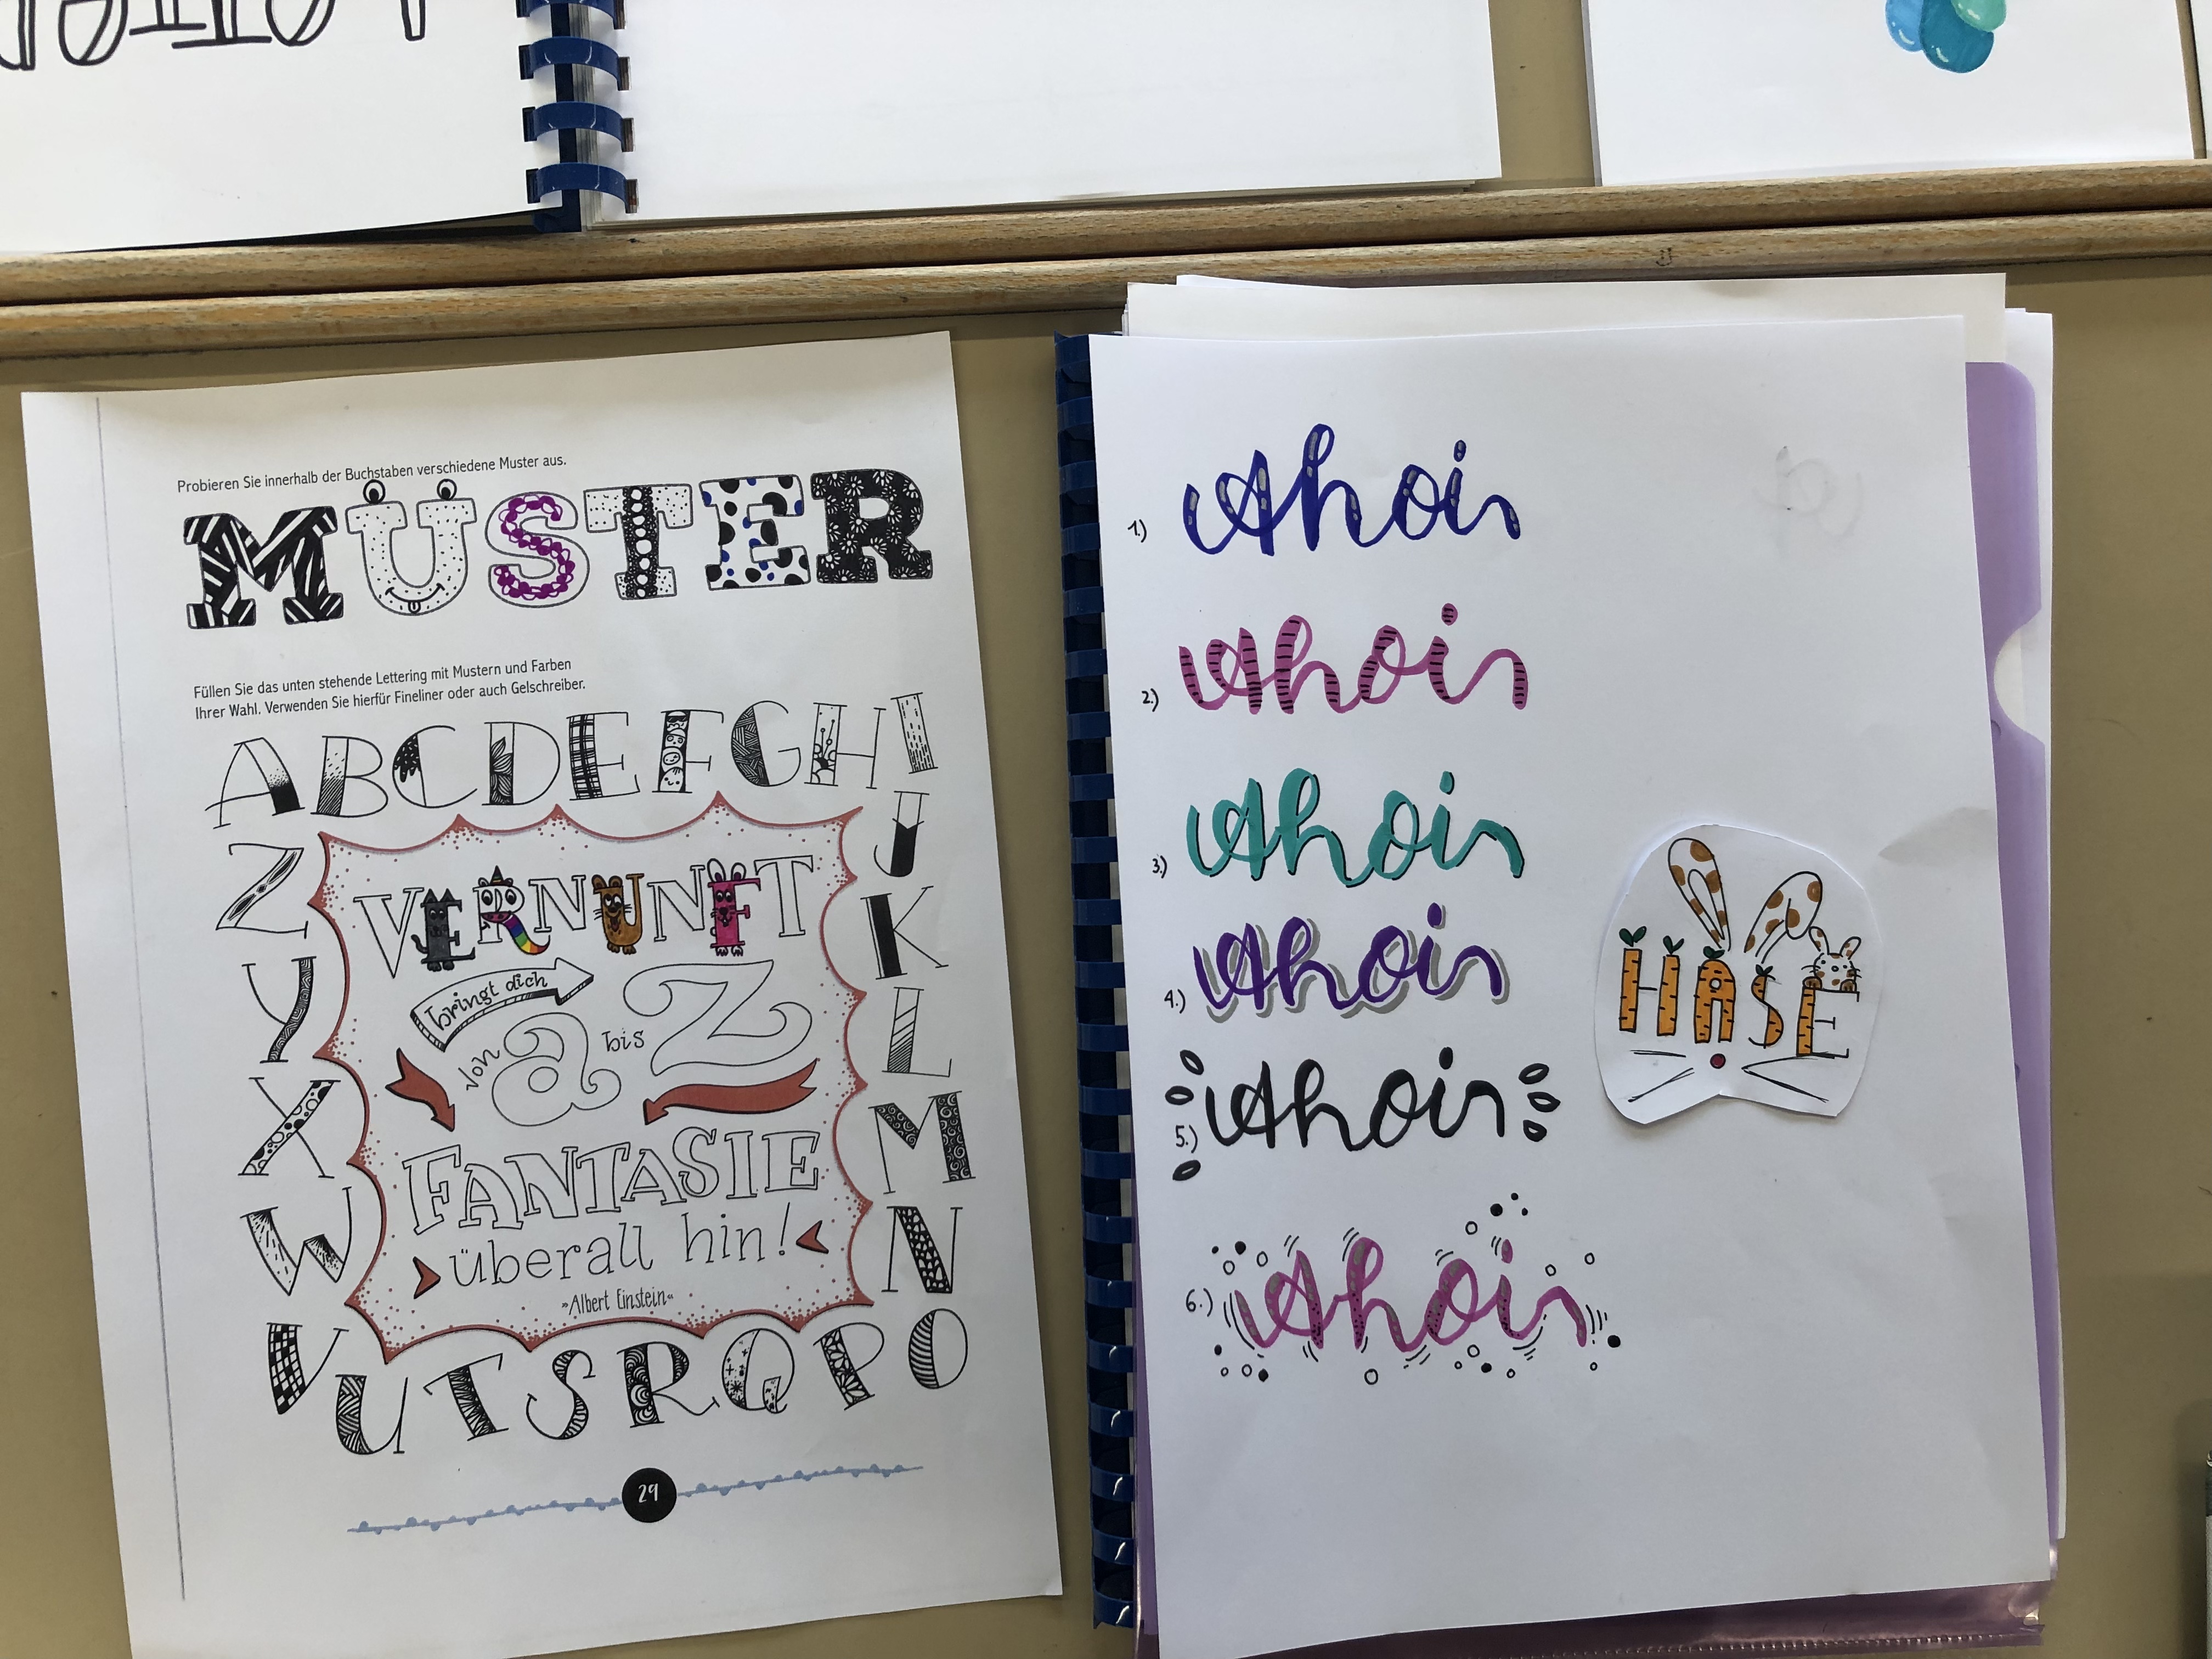 Probieren Sie innerhalb der Buchstaben verschiedene Muster aus.
MÜSTER
Füllen Sie das unten stehende Lettering mit Mustern und Farben
Ihrer Wahl. Verwenden Sie hierfür Fineliner oder auch Gelschreiber.
ABCDEFGHI
J
K
L
M
N
O
P
Q
R
S
T
U
V
W
X
Y
Z
VERNUNFT
bringt dich
von a bis Z
FANTASIE
überall hin!
»Albert Einstein«
29
1.) Ahoi
2.) Ahoi
3.) Ahoi
4.) Ahoi
5.) Ahoi
6.) Ahoi
HASE